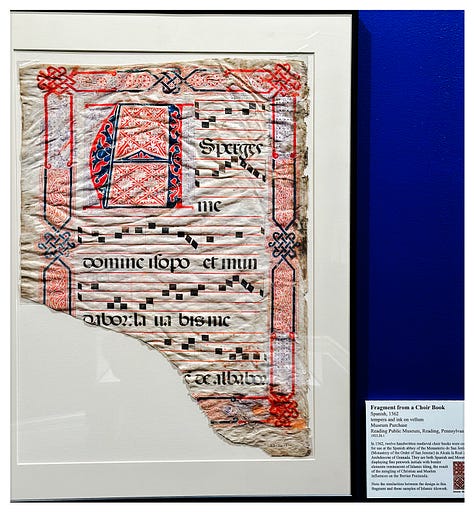 A
Sperges
me
domine isopo et mun
dabor: la ua bis me
e de albabor
Fragment from a Choir Book
Spanish, 1562
tempera and ink on vellum
Museum Purchase
Reading Public Museum, Reading,
In 1562, twelve handwritten medieval choir books were
for use at the Spanish abbey of the Monasterio de San
(Monastery of the Order of San in Alcala la Real
Archdiocese of Granada. They are both Spanish and
displaying fine penwork initials with border
elements reminiscent of Islamic tiling, the result
of the mingling of Christian and Muslim
influences on the Iberian Peninsula.
Note the similarities between the design in this
fragment and these samples of Islamic tilework.